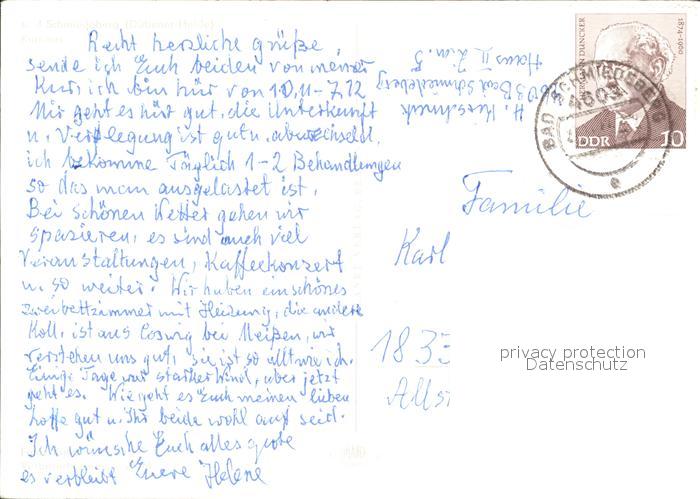 Recht herzliche grüße,
sende ich Euch beiden von meiner
Kur ich bin hür von 10.11 - 7.12
Mir geht es hür gut, die Unterkunft
u. Verpflegung ist gut u. abwechseld.
ich bekomme Täglich 1-2 Behandlungen
so das man ausgelastet ist.
Bei schönen Wetter gehen wir
spazieren, es sind auch viel
Veranstaltungen, Kaffeekonzert
u. so weiter. Wir haben ein schönes
zweibettzimmer mit Heizung, die andere
Koll. ist aus Coswig bei Meißen, wir
verstehen uns gut, sie ist so alt wie ich.
Einige Tage war starker Wind, aber jetzt
geht es. Wie geht es Euch meinen lieben
hoffe gut u. Ihr beide wohl auf seid.
Ich wünsche Euch alles gute
es verbleibt Euere Helene
H.
Haus II Zim. 5
Bad Schmiedeberg
Familie
Karl
183
Allst
1874-1960
DUNCKER
DDR
10
BAD SCHMIEDEBERG
privacy protection
Datenschutz